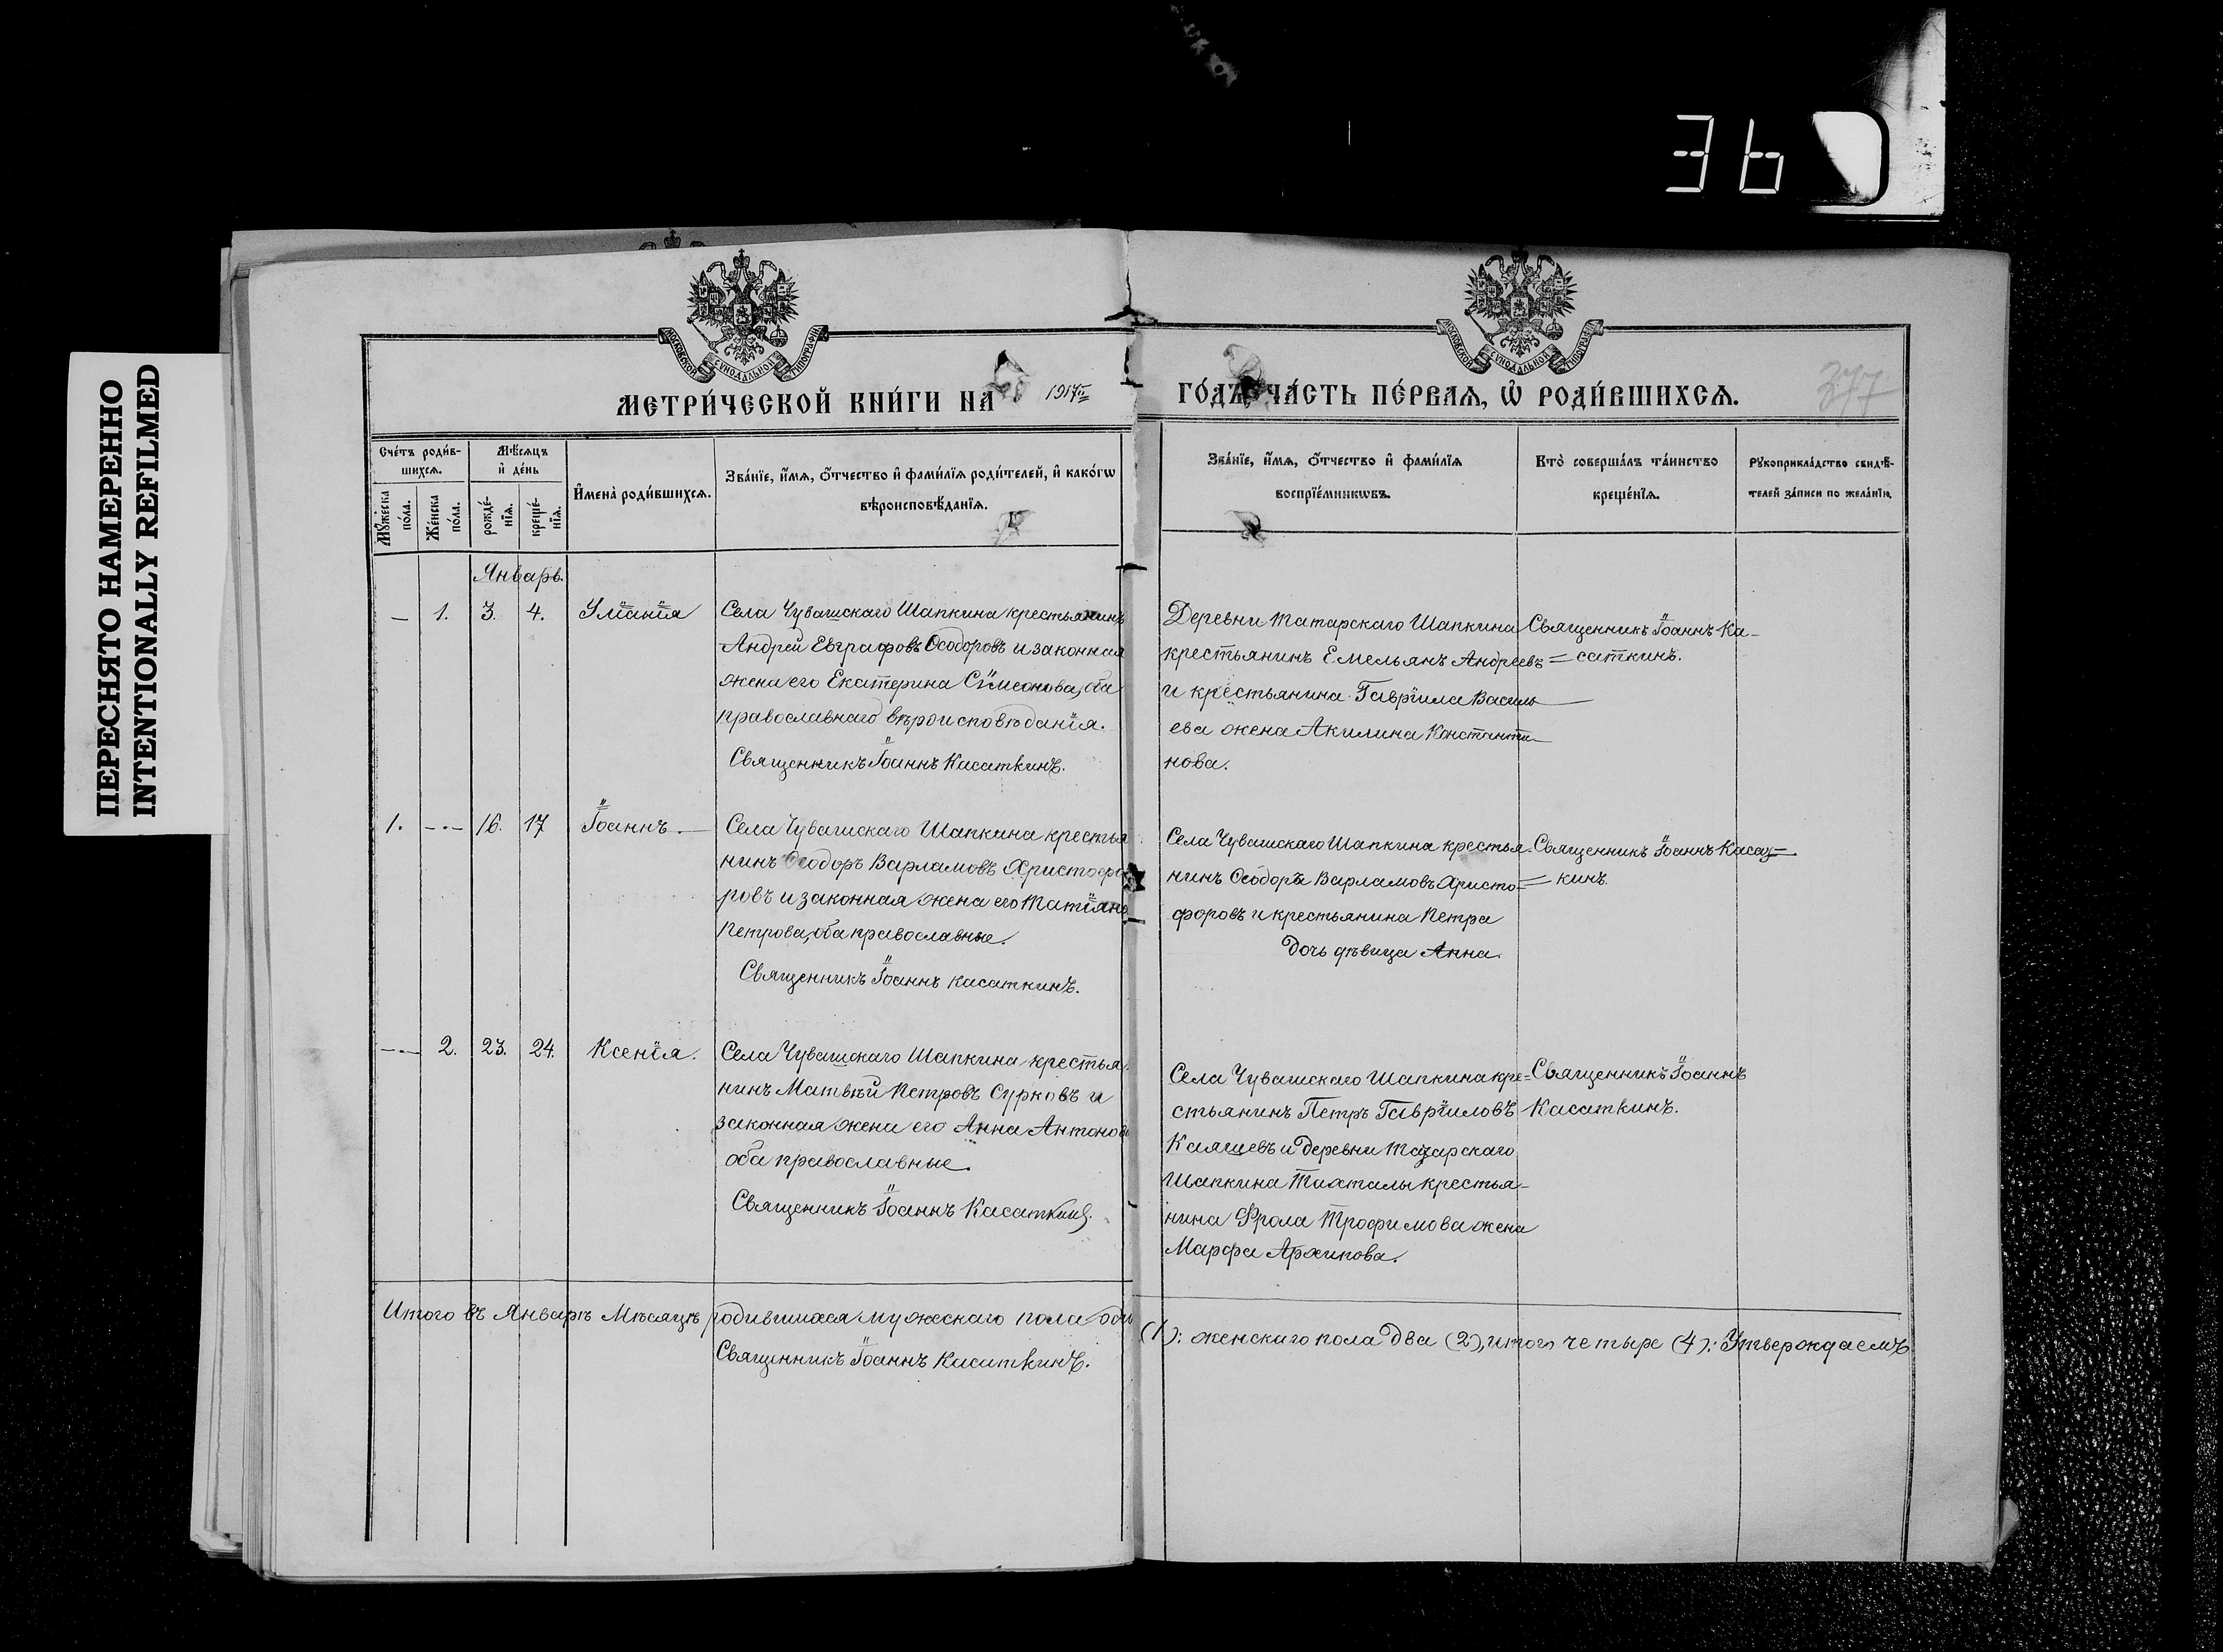 36
ПЕРЕСНЯТО НАМЕРЕННО
INTENTIONALLY REFILMED
МОСКОВСКОЙ СѴНОДАЛЬНОЙ ТИПОГРАФІИ
МОСКОВСКОЙ СѴНОДАЛЬНОЙ ТИПОГРАФІИ
МЕТРИ́ЧЕСКОЙ КНИ́ГИ НА 1917й ГО́ДЪ ЧА́СТЬ ПЕ́РВАѦ, Ѡ҆ РОДИ́ВШИХСѦ.
377
Сче́тъ роди́в-
шихсѧ.
Мꙋ́жеска по́ла.
Же́нска по́ла.
Мѣ́сѧцъ
и҆ де́нь
рожде́-нїѧ.
креще́-нїѧ.
И҆мена̀ роди́вшихсѧ.
Зва́нїе, и҆́мѧ, ѻ҆́тчество и҆ фами́лїѧ роди́телей, и҆ како́гѡ
вѣроисповѣ́данїѧ.
Зва́нїе, и҆́мѧ, ѻ҆́тчество и҆ фами́лїѧ
воспрїе́мникѡвъ.
Кто̀ соверша́лъ та́инство
креще́нїѧ.
Рꙋкоприкла́дство свидѣ́-
телей за́писи по жела́нїю.
Январь.
— 1. 3. 4. Уліанія
Села Чувашскаго Шапкина крестьянинъ
Андрей Евграфовъ Ѳеодоровъ и законная
жена его Екатерина Сѵмеонова, оба
православнаго вѣроисповѣданія.
Священникъ Іоаннъ Касаткинъ.
Деревни Татарскаго Шапкина
крестьянинъ Емельянъ Андреевъ
и крестьянина Гавріила Василь
ева жена Акилина Константи-
нова.
Священникъ Іоаннъ Ка-
саткинъ.
1. -.- 16. 17 Іоаннъ.
Села Чувашскаго Шапкина крестья
нинъ Ѳеодоръ Варламовъ Христофо
ровъ и законная жена его Татіяна
Петрова, оба православные.
Священникъ Іоаннъ Касаткинъ.
Села Чувашскаго Шапкина крестья-
нинъ Ѳеодоръ Варламовъ Христо=
форовъ и крестьянина Петра
дочь дѣвица Анна.
Священникъ Іоаннъ Касат=
кинъ.
-.- 2. 23. 24. Ксенія.
Села Чувашскаго Шапкина крестья
нинъ Матвѣй Петровъ Сурковъ и
законная жена его Анна Антонов
оба православные.
Священникъ Іоаннъ Касаткинъ.
Села Чувашскаго Шапкина кре=
стьянинъ Петръ Гавріиловъ
и деревни Татарскаго
Шапкина крестья-
нина Фрола Трофимова жена
Марфа Архипова.
Священникъ Іоаннъ
Касаткинъ.
Итого въ Январѣ Мѣсяцѣ родившихся мужескаго пола одн (1): женскаго пола два (2), итого четыре (4): Утверждаемъ
Священникъ Іоаннъ Касаткинъ.